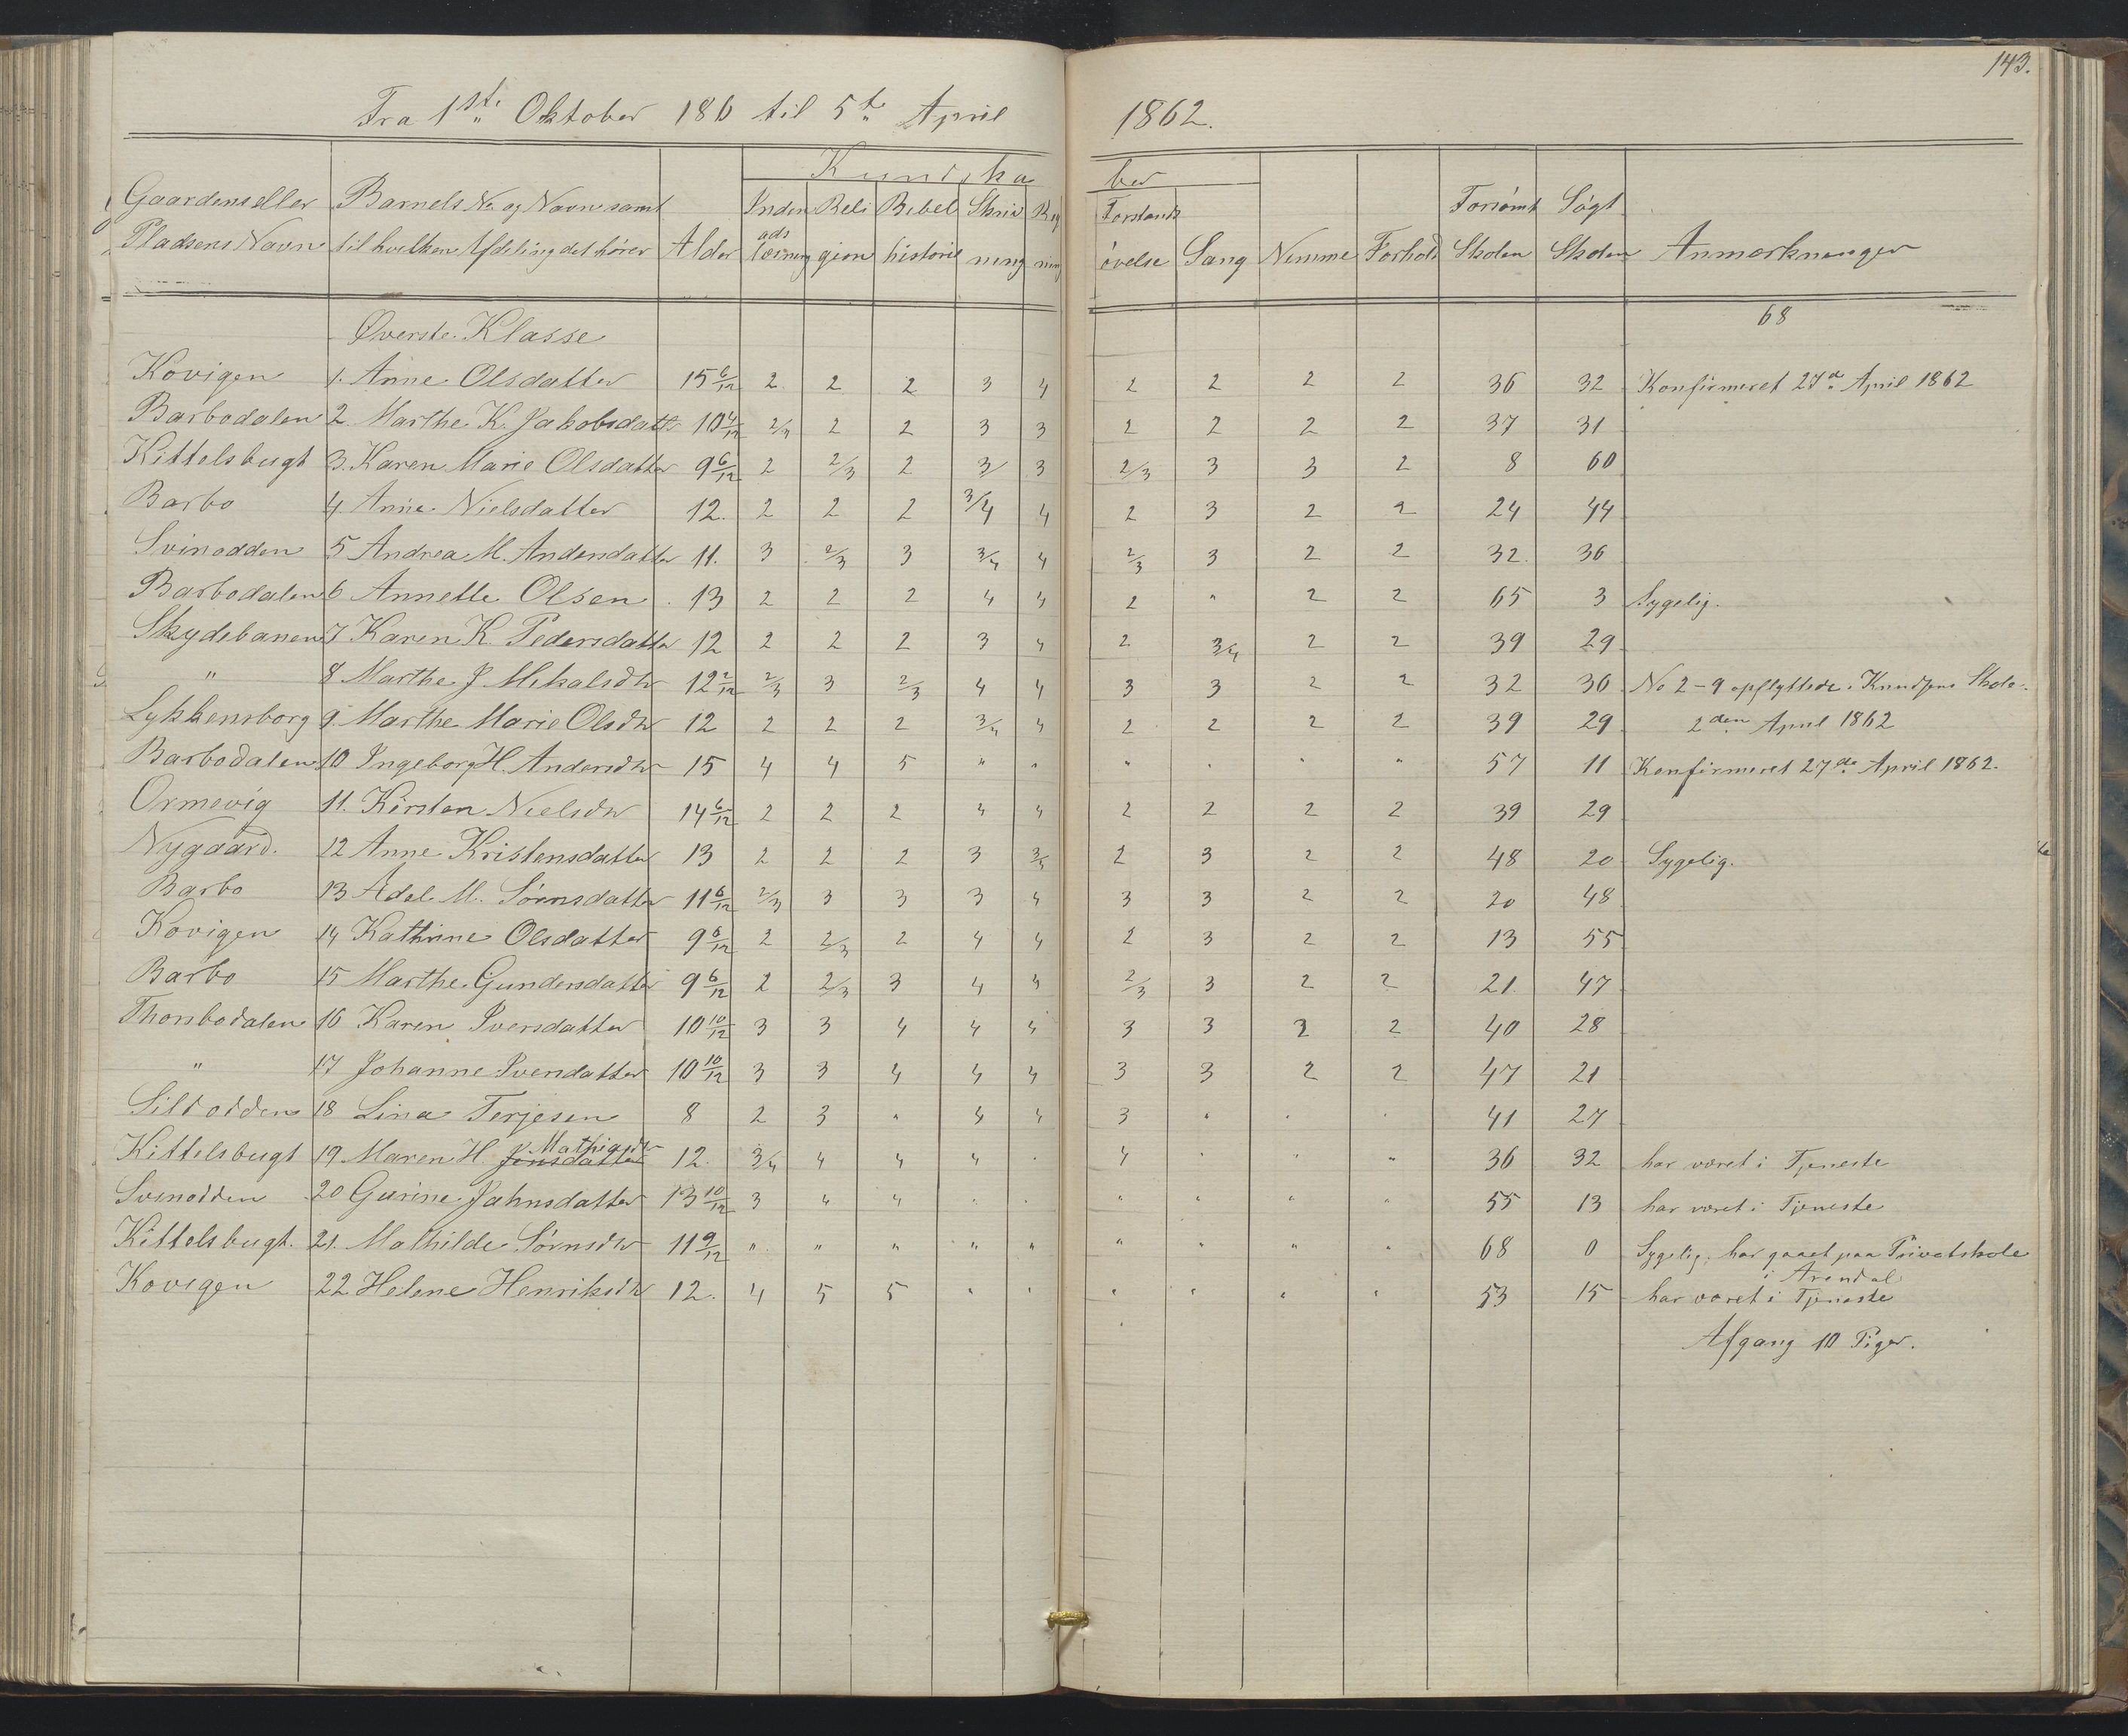 143.
Fra 1ste Oktober 186 til 5te April 1862.
Kundska ber
Gaardens eller Barnets No og Navn samt Inden Reli Bibel Skriv Reg Forstands Forsømt Søgt
Pladsens Navn til hvilken Afdeling det hører Alder ads læsning gion historie ning ning øvelse Sang Nemme Forhold Skolen Skolen Anmærkninger
Øverste Klasse 68
Kovigen 1. Anne Olsdatter 15 6/12 2 2 2 3 4 2 2 2 2 36 32 Konfirmeret 27de April 1862
Barbodalen 2 Marthe K. Jakobsdattr 10 4/12 2/3 2 2 3 3 2 2 2 2 37 31
Kittelsbugt 3. Karen Marie Olsdatter 9 6/12 2 2/3 2 3/ 3 2/3 3 3 2 8 60
Barbo 4. Anne Nielsdatter 12. 2 2 2 3/4 4 2 3 2 2 24 44
Svinodden 5 Andrea M. Andersdatter 11. 3 2/3 3 3/4 4 2/3 3 2 2 32. 36
Barbodalen 6 Annette Olsen 13 2 2 2 4 4 2 " 2 2 65 3 Sygelig.
Skydebanen 7 Karen K. Pedersdatter 12 2 2 2 3 4 2 3/4 2 2 39 29
" 8 Marthe J. Mikalsdtr 12 2/12 2/3 3 2/3 4 4 3 3 2 2 32 36 No 2-9 opflyttede i Knudsens Skole
Lykkensborg 9. Marthe Marie Olsdtr 12 2 2 2 3/4 4 2 2 2 2 39 29 2den April 1862
Barbodalen 10 Ingeborg H. Andersdtr 15 4 4 5 " " " " " " 57 11 Konfirmeret 27de April 1862.
Ormevig 11. Kirsten Nielsdtr 14 6/12 2 2 2 4 4 2 2 2 2 39 29
Nygaard. 12 Anne Kristensdatter 13 2 2 2 3 3/4 2 3 2 2 48 20 Sygelig.
Barbo 13 Adel M. Sørensdatter 11 6/12 2/3 3 3 3 4 3 3 2 2 20 48
Kovigen 14 Kathrine Olsdatter 9 6/12 2 2/3 2 4 4 2 3 2 2 13 55
Barbo 15 Marthe Gundersdatter 9 6/12 2 2/3 3 4 4 2/3 3 2 2 21. 47
Thorsbodalen 16 Karen Iversdatter 10 10/12 3 3 4 4 4 3 3 2 2 40 28
" 17 Johanne Svendatter 10 10/12 3 3 4 4 4 3 3 2 2 47 21
Sildodden 18 Lina Terjesen 8 2 3 " 4 4 3 " " " 41 27
Kittelsbugt 19 Maren H. Jensdatter Mathiasdtr 12. 3/4 4 4 4 " 4 " " " 36 32 har været i Tjeneste
Svinodden 20 Gurine Jahnsdatter 13 10/12 3 4 4 " " " " " " 55 13 har været i Tjeneste
Kittelsbugt. 21. Mathilde Sørnsdtr 11 9/12 " " " " " " " " " 68 0 Sygelig, har gaaet paa Privatskole
i Arendal
Kovigen 22 Helene Henriksdtr 12. 4 5 5 " " " " " " 53 15 har været i Tjeneste
Afgang 10 Piger.